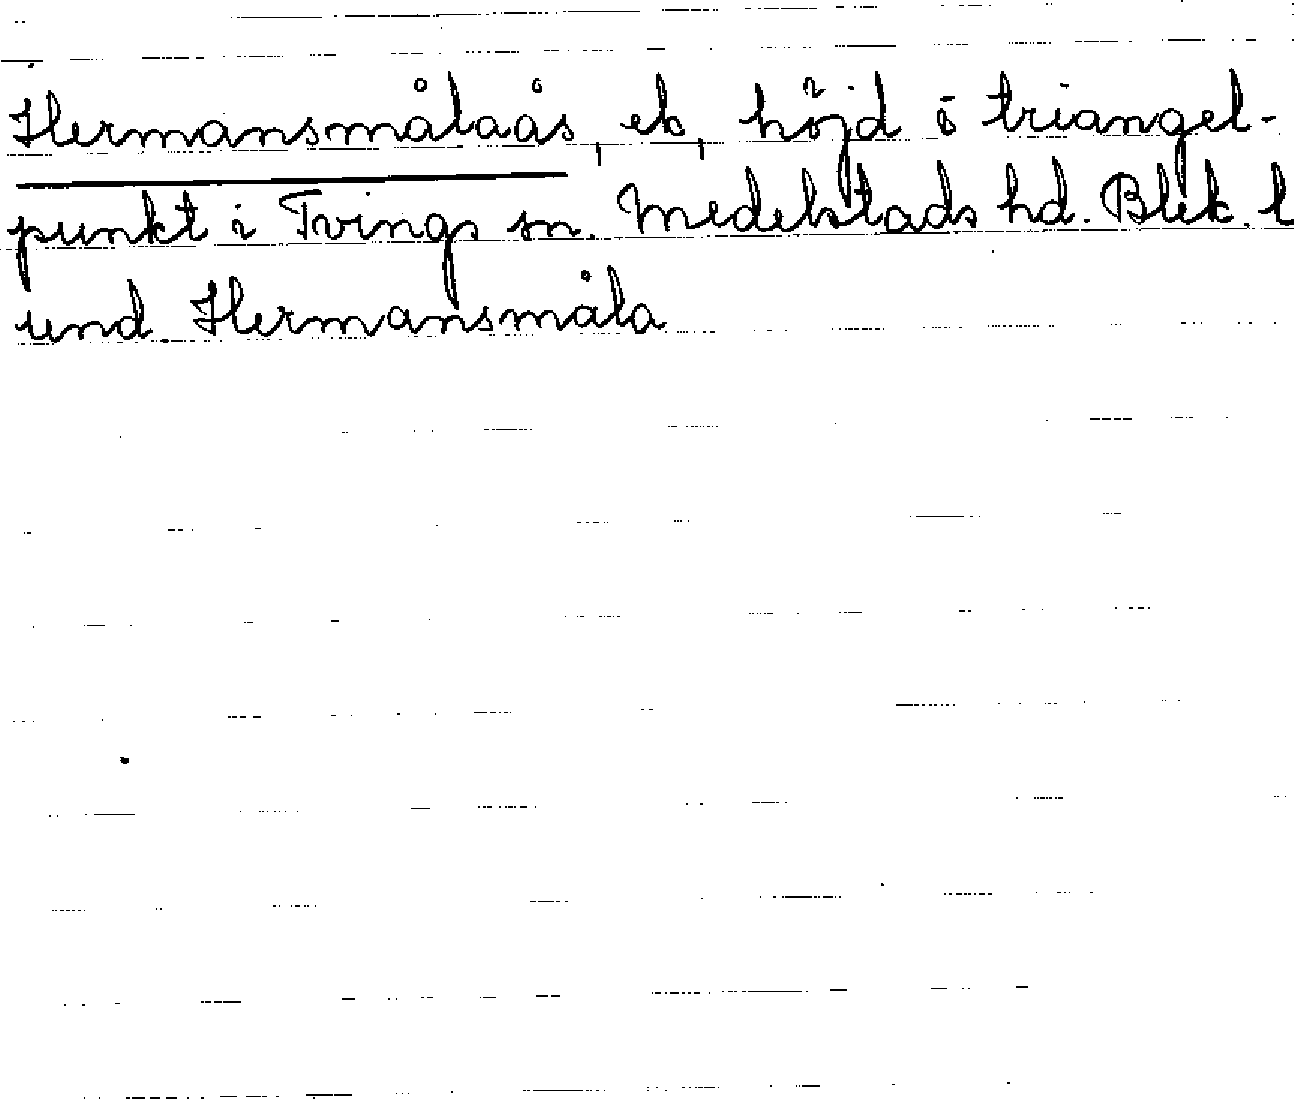 Hermansmålaås, ek, höjd o triangel-
punkt i Tvings sn. Medelstads hd. Blek. l
und. Hermansmåla